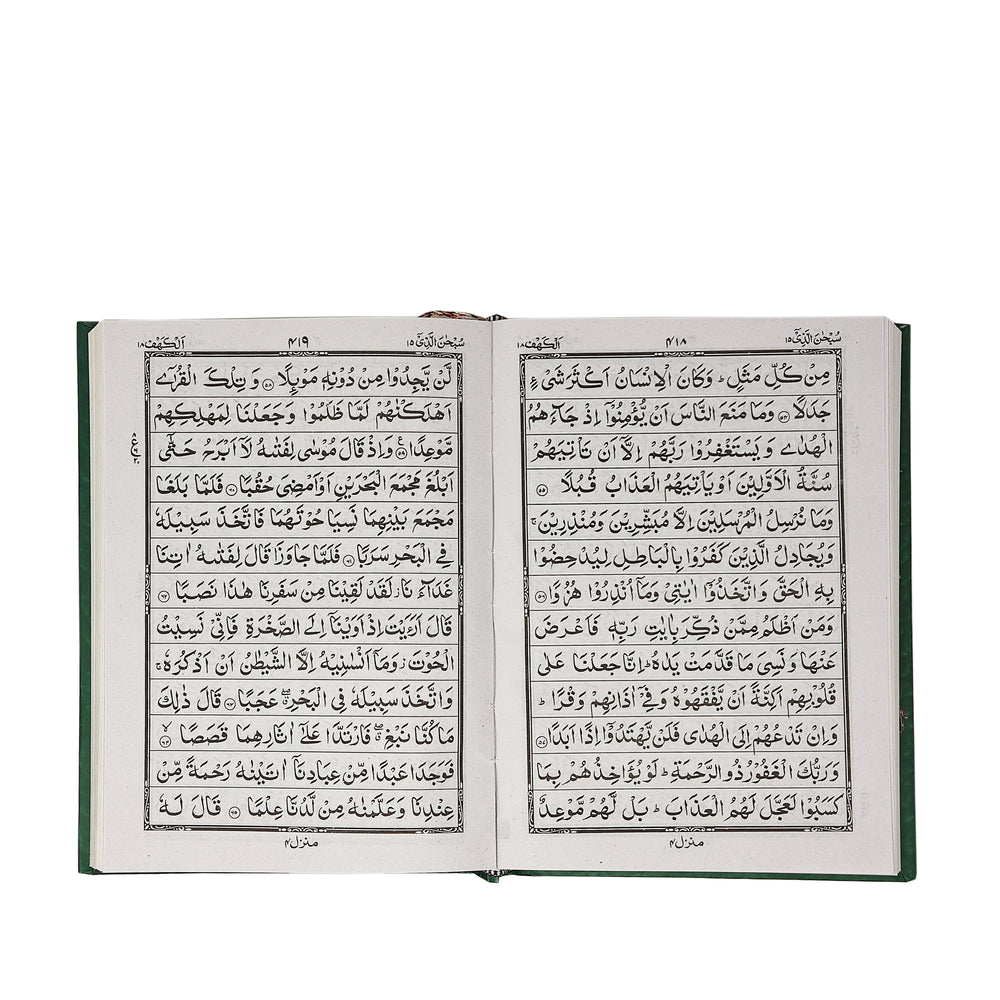 سُبْحٰنَ الَّذِیْٓ ۱۵
۴۱۸
اَلْكَهْف ۱۸
مِنْ كُلِّ مَثَلٍ ؕ وَكَانَ الْاِنْسَانُ اَكْثَرَ شَیْءٍ
جَدَلًا ۝۵۴ وَمَا مَنَعَ النَّاسَ اَنْ یُّؤْمِنُوْۤا اِذْ جَآءَهُمُ
الْهُدٰی وَیَسْتَغْفِرُوْا رَبَّهُمْ اِلَّاۤ اَنْ تَاْتِیَهُمْ
سُنَّةُ الْاَوَّلِیْنَ اَوْ یَاْتِیَهُمُ الْعَذَابُ قُبُلًا ۝۵۵
وَمَا نُرْسِلُ الْمُرْسَلِیْنَ اِلَّا مُبَشِّرِیْنَ وَمُنْذِرِیْنَ ۚ
وَیُجَادِلُ الَّذِیْنَ كَفَرُوْا بِالْبَاطِلِ لِیُدْحِضُوْا
بِهِ الْحَقَّ وَاتَّخَذُوْۤا اٰیٰتِیْ وَمَاۤ اُنْذِرُوْا هُزُوًا ۝۵۶
وَمَنْ اَظْلَمُ مِمَّنْ ذُكِّرَ بِاٰیٰتِ رَبِّهٖ فَاَعْرَضَ
عَنْهَا وَنَسِیَ مَا قَدَّمَتْ یَدٰهُ ؕ اِنَّا جَعَلْنَا عَلٰی
قُلُوْبِهِمْ اَكِنَّةً اَنْ یَّفْقَهُوْهُ وَفِیْۤ اٰذَانِهِمْ وَقْرًا ؕ
وَاِنْ تَدْعُهُمْ اِلَی الْهُدٰی فَلَنْ یَّهْتَدُوْۤا اِذًا اَبَدًا ۝۵۷
وَرَبُّكَ الْغَفُوْرُ ذُو الرَّحْمَةِ ؕ لَوْ یُؤَاخِذُهُمْ بِمَا
كَسَبُوْا لَعَجَّلَ لَهُمُ الْعَذَابَ ؕ بَلْ لَّهُمْ مَّوْعِدٌ
منزل ۴
سُبْحٰنَ الَّذِیْٓ ۱۵
۴۱۹
اَلْكَهْف ۱۸
لَّنْ یَّجِدُوْا مِنْ دُوْنِهٖ مَوْىِٕلًا ۝۵۸ وَتِلْكَ الْقُرٰۤی
اَهْلَكْنٰهُمْ لَمَّا ظَلَمُوْا وَجَعَلْنَا لِمَهْلِكِهِمْ
مَّوْعِدًا ۝۵۹ وَاِذْ قَالَ مُوْسٰی لِفَتٰىهُ لَاۤ اَبْرَحُ حَتّٰۤی
اَبْلُغَ مَجْمَعَ الْبَحْرَیْنِ اَوْ اَمْضِیَ حُقُبًا ۝۶۰ فَلَمَّا بَلَغَا
مَجْمَعَ بَیْنِهِمَا نَسِیَا حُوْتَهُمَا فَاتَّخَذَ سَبِیْلَهٗ
فِی الْبَحْرِ سَرَبًا ۝۶۱ فَلَمَّا جَاوَزَا قَالَ لِفَتٰىهُ اٰتِنَا
غَدَآءَنَا ؗ لَقَدْ لَقِیْنَا مِنْ سَفَرِنَا هٰذَا نَصَبًا ۝۶۲
قَالَ اَرَءَیْتَ اِذْ اَوَیْنَاۤ اِلَی الصَّخْرَةِ فَاِنِّیْ نَسِیْتُ
الْحُوْتَ ؗ وَمَاۤ اَنْسٰىنِیْهُ اِلَّا الشَّیْطٰنُ اَنْ اَذْكُرَهٗ ۚ
وَاتَّخَذَ سَبِیْلَهٗ فِی الْبَحْرِ ۖۗ عَجَبًا ۝۶۳ قَالَ ذٰلِكَ
مَا كُنَّا نَبْغِ ۖۗ فَارْتَدَّا عَلٰۤی اٰثَارِهِمَا قَصَصًا ۙ۝۶۴
فَوَجَدَا عَبْدًا مِّنْ عِبَادِنَاۤ اٰتَیْنٰهُ رَحْمَةً مِّنْ
عِنْدِنَا وَعَلَّمْنٰهُ مِنْ لَّدُنَّا عِلْمًا ۝۶۵ قَالَ لَهٗ
منزل ۴